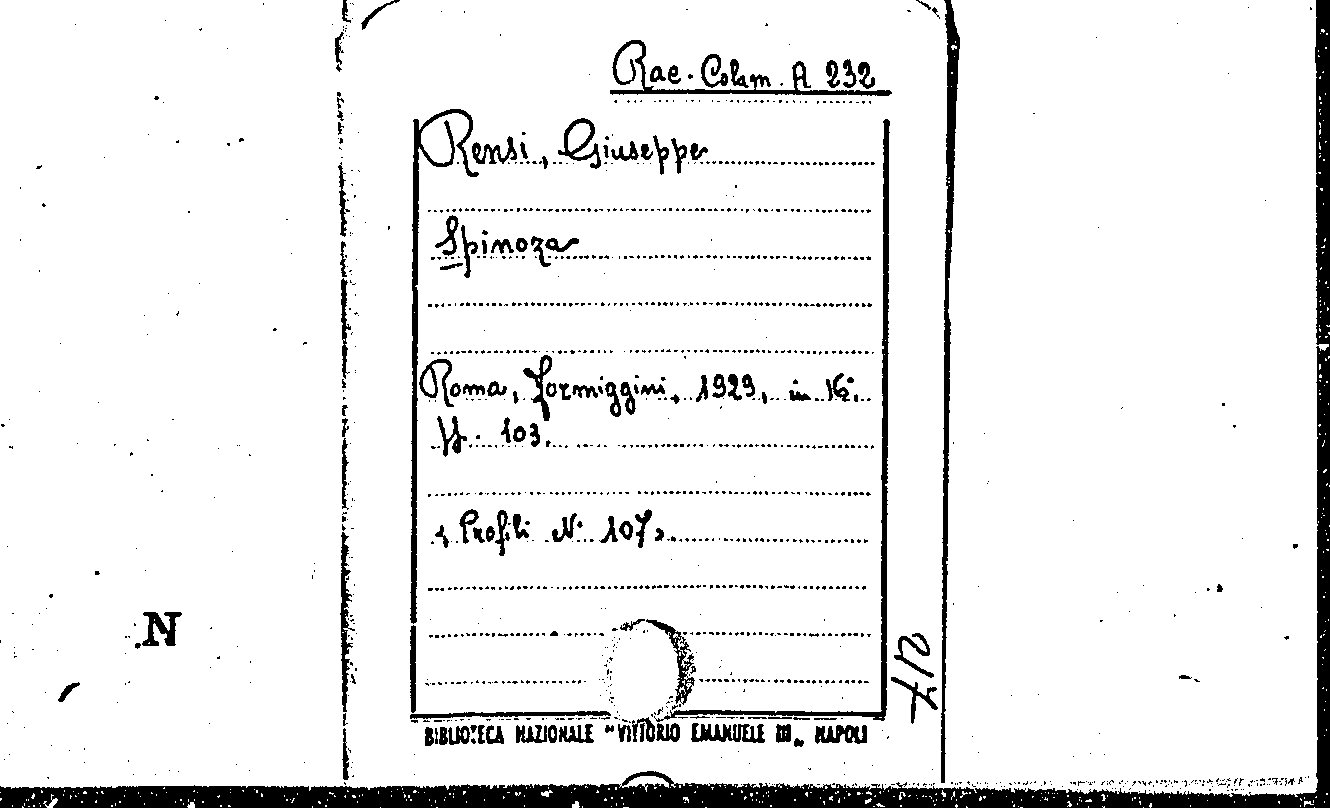 Rac. Colam. A 232
Rensi, Giuseppe
Spinoza
Roma, Formiggini, 1929, in 16°.
pp. 103.
« Profili N. 107 ».
N
217
BIBLIOTECA NAZIONALE "VITTORIO EMANUELE III„ NAPOLI